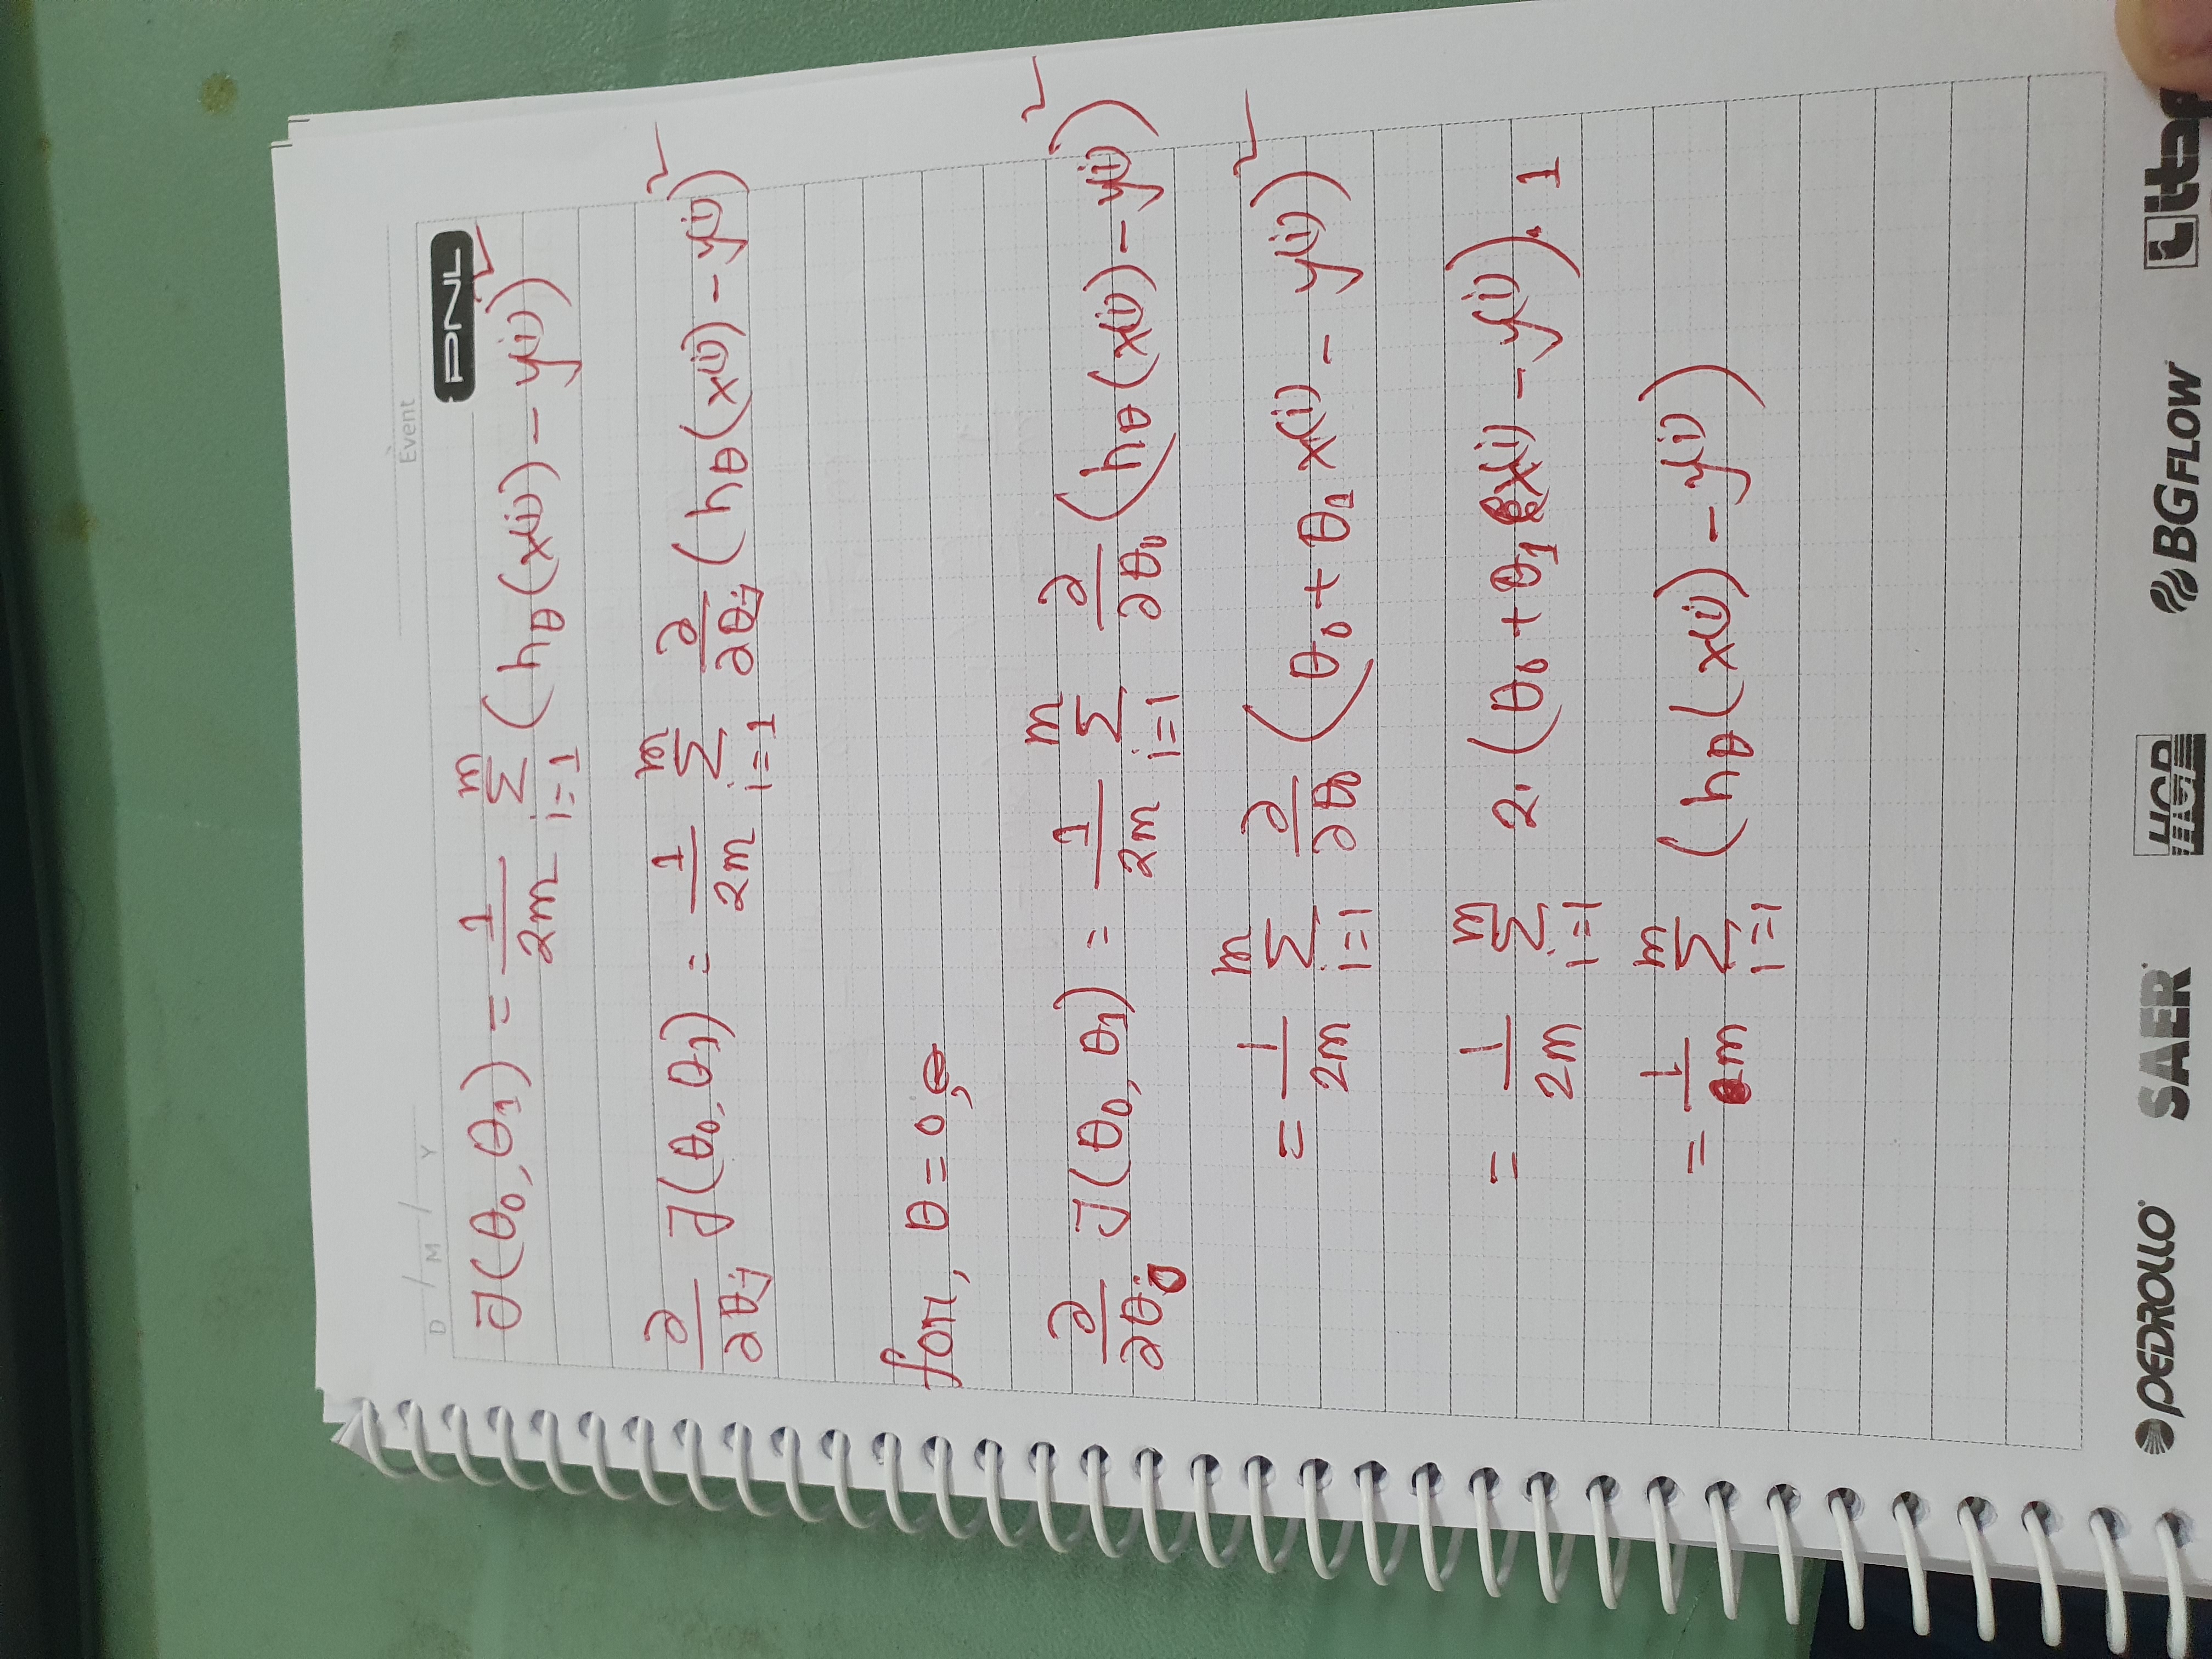 D / M / Y
Event
PNL
J(θ₀, θ₁) = 1/2m Σᵢ₌₁ᵐ (h_θ(x(i)) - y(i))²
∂/∂θⱼ J(θ₀, θ₁) = 1/2m Σᵢ₌₁ᵐ ∂/∂θⱼ (h_θ(x(i)) - y(i))²
for, θ = 0,
∂/∂θ₀ J(θ₀, θ₁) = 1/2m Σᵢ₌₁ᵐ ∂/∂θ₀ (h_θ(x(i)) - y(i))²
= 1/2m Σᵢ₌₁ᵐ ∂/∂θ₀ (θ₀ + θ₁ x(i) - y(i))²
= 1/2m Σᵢ₌₁ᵐ 2. (θ₀ + θ₁ x(i) - y(i)). 1
= 1/m Σᵢ₌₁ᵐ (h_θ(x(i)) - y(i))
PEDROLLO SAER HCP BGFLOW